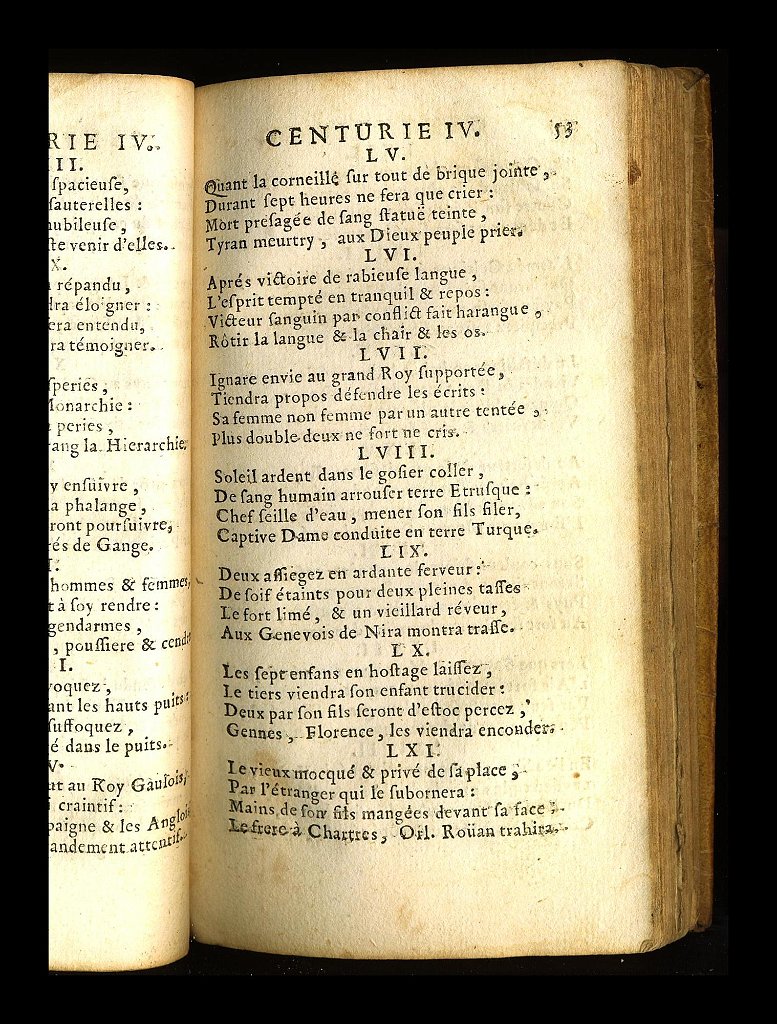 RIE IV.
III.
spacieuse,
sauterelles :
nubileuse,
venir d'elles.
X.
répandu,
éloigner :
entendu,
témoigner.
X
Monarchie :
peries,
la Hierarchie.
ensuivre,
phalange,
ront poursuivre,
de Gange.
I.
hommes & femmes,
à soy rendre :
gendarmes,
, poussiere &
I.
voquez,
les hauts puits :
suffoquez,
é dans le puits.
V.
au Roy Gaulois,
craintif :
& les Anglois
attentif.
CENTURIE IV. 53
LV.
Quant la corneille sur tout de brique jointe,
Durant sept heures ne fera que crier :
Mort presagée de sang statuë teinte,
Tyran meurtry, aux Dieux peuple prier.
LVI.
Aprés victoire de rabieuse langue,
L'esprit tempté en tranquil & repos :
Victeur sanguin par conflict fait harangue,
Rôtir la langue & la chair & les os.
LVII.
Ignare envie au grand Roy supportée,
Tiendra propos défendre les écrits :
Sa femme non femme par un autre tentée,
Plus double deux ne fort ne cris.
LVIII.
Soleil ardent dans le gosier coller,
De sang humain arrouser terre Etrusque :
Chef seille d'eau, mener son fils filer,
Captive Dame conduite en terre Turque.
LIX.
Deux assiegez en ardante ferveur :
De soif étaints pour deux pleines tasses
Le fort limé, & un vieillard réveur,
Aux Genevois de Nira montra trasse.
LX.
Les sept enfans en hostage laissez,
Le tiers viendra son enfant trucider :
Deux par son fils seront d'estoc percez,
Gennes, Florence, les viendra enconder.
LXI.
Le vieux mocqué & privé de sa place,
Par l'étranger qui le subornera :
Mains de son fils mangées devant sa face :
Le frere à Chartres, Orl. Roüan trahira.